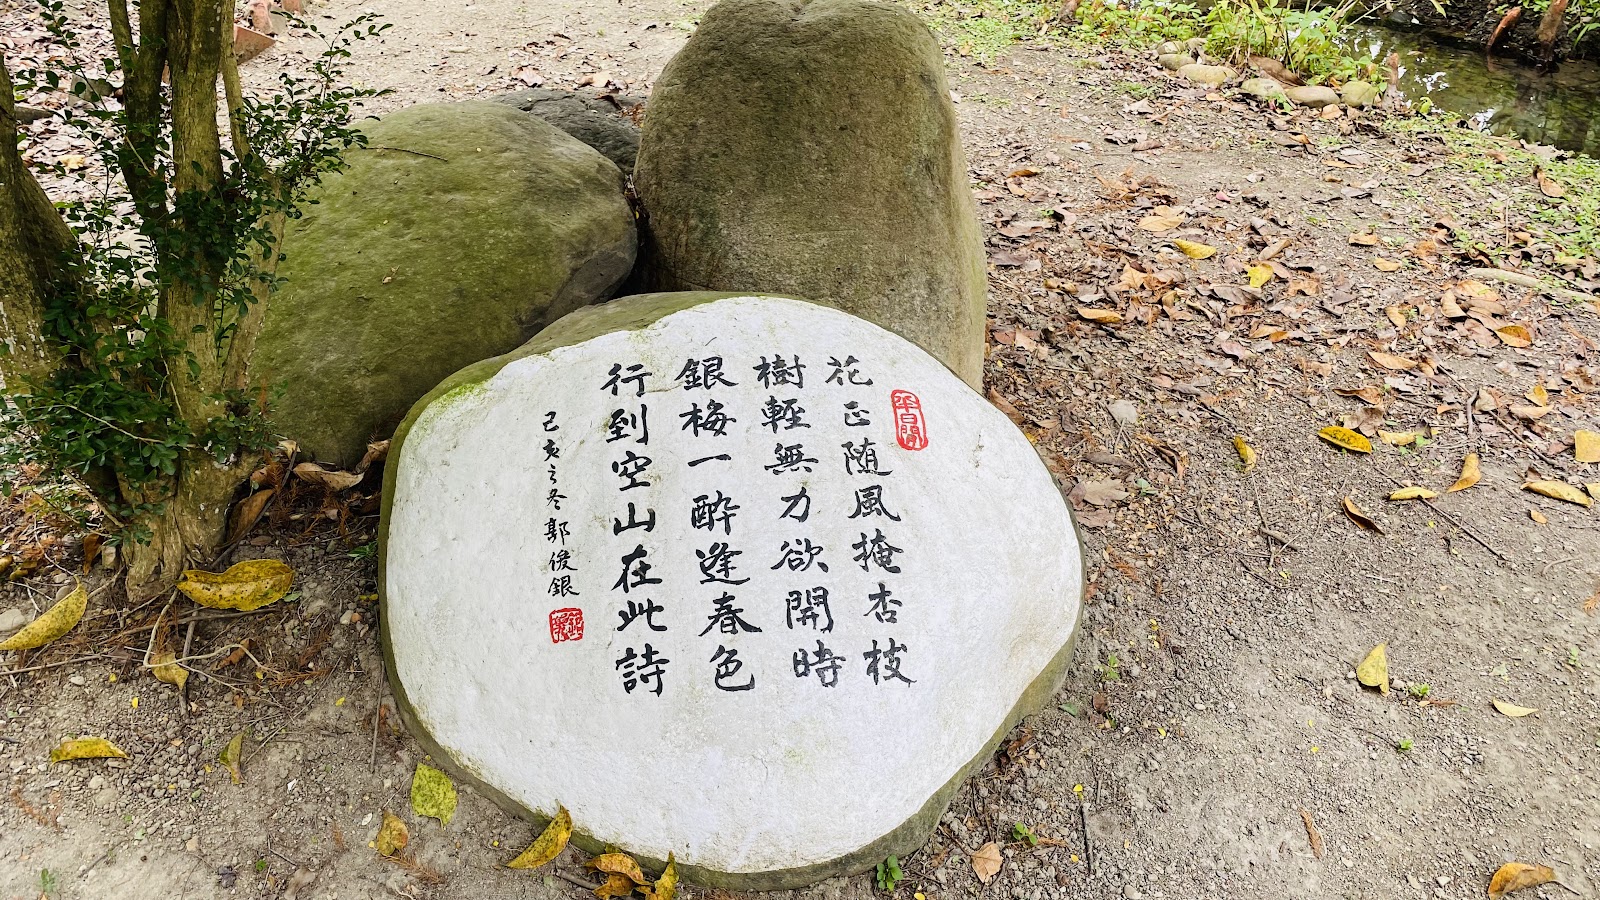 平日閒
花正随風掩杏枝
樹輕無力欲開時
銀梅一酔逢春色
行到空山在此詩
己亥之冬郭俊銀